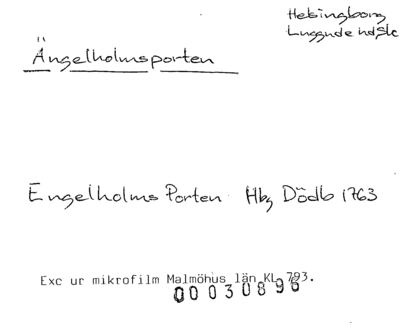 Helsingborg
Luggude hdslc
Ängelholmsporten
Engelholms Porten Hbg Dödb 1763
Exc ur mikrofilm Malmöhus län KL 793.
00030896